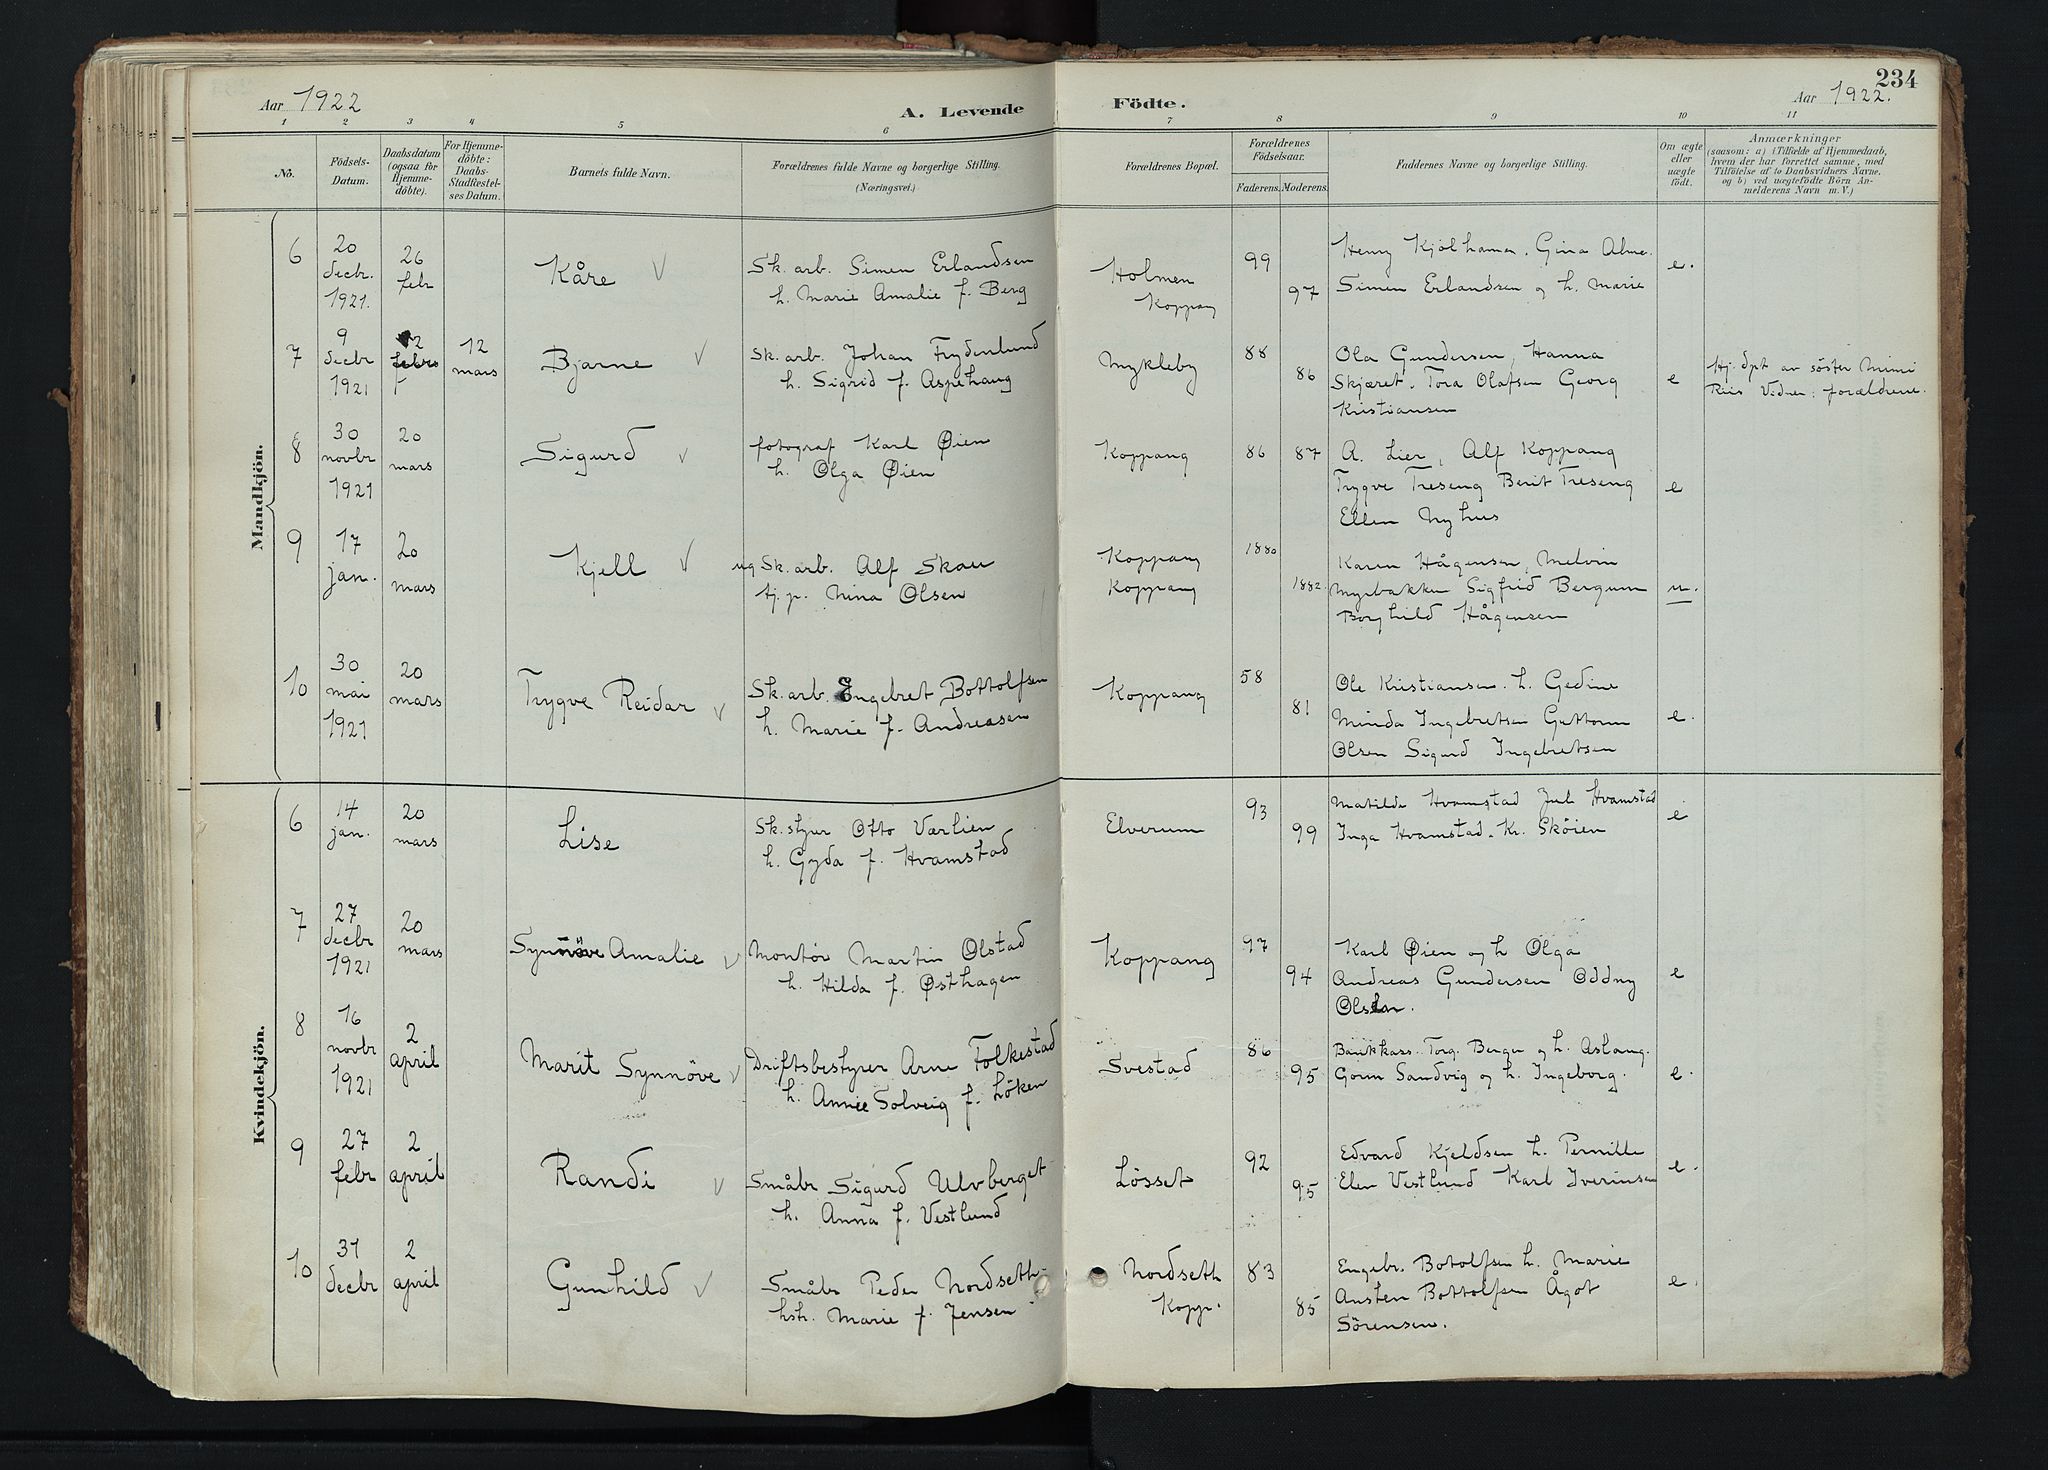 234
Aar 1922
A. Levende Födte.
Aar 1922.
1 2 3 4 5 6 7 8 9 10 11
No.
Födsels-Datum.
Daabsdatum (ogsaa for Hjemme-döbte).
For Hjemme-döbte: Daabs-Stadfæstel-ses Datum.
Barnets fulde Navn.
Forældrenes fulde Navne og borgerlige Stilling. (Næringsvei.)
Forældrenes Bopæl.
Forældrenes Födselsaar.
Faderens. Moderens.
Faddernes Navne og borgerlige Stilling.
Om ægte eller uægte født.
Anmærkninger
(saasom: a) i Tilfælde af Hjemmedaab,
hvem der har forrettet samme, med
Tilföielse af to Daabsvidners Navne,
og b) ved uægtefödte Börn An-
melderens Navn m. V.)
Mandkjön.
6
20 decbr. 1921.
26 febr
Kåre
Sk. arb. Simen Erlandsen
h. Marie Amalie f. Berg
Holmen
Koppang
99
97
Henry Kjölhamar. Gina Alme.
Simen Erlandsen og h. Marie
e.
7
9 decbr 1921
12 mars
Bjarne
Sk. arb. Johan Frydenlund
h. Sigrid f. Aspehaug
Mykleby
88
86
Ola Gundersen, Hanna
Skjæret. Tora Olafsen Georg
Kristiansen
e
Hj. dpt av söster Mimi
Riis Vidner: forældrene.
8
30 novbr 1921
20 mars
Sigurd
fotograf Karl Øien
h. Olga Øien
Koppang
86
87
A. Lier, Alf Koppang
Trygve Treseng Berit Treseng
Ellen Nyhus
e
9
17 jan.
20 mars
Kjell
ug Sk. arb. Alf Skau
tj. p. Nina Olsen
Koppang
Koppang
1880
1882.
Karen Hågensen, Melvin
Myrbakken Sigfrid Bergum
Borghild Hågensen
u.
10
30 mai 1921
20 mars
Trygve Reidar
Sk. arb. Engebret Bottolfsen
h. Marie f. Andreasen
Koppang
58
81
Ole Kristiansen. h. Gedine
Minda Ingebretsen Guttorm
Olsen Sigurd Ingebretsen
e.
Kvindekjön.
6
14 jan.
20 mars
Lise
Sk. styr Otto Værlien
h. Gyda f. Hvamstad
Elverum
93
99
Matilde Hvamstad Jul. Hvamstad
Inga Hvamstad. Kr. Sköien
e
7
27 decbr 1921
20 mars
Synnöve Amalie
Montör Martin Olstad
h. Hilda f. Østhagen
Koppang
97
94
Karl Øien og h Olga
Andreas Gundersen Oddny
Olsen.
e
8
16 novbr 1921
2 april
Marit Synnöve
Driftsbestyrer Arne Folkestad
h. Annie Solveig f. Löken
Svestad
86
95
Bankkass. Torg. Berger og h. Aslaug.
Gorm Sandvig og h. Ingeborg.
e.
9
27 febr
2 april
Randi
Småbr Sigurd Ulvberget
h. Anna f. Vestlund
Lösset
92
95
Edvard Kjeldsen h. Pernille
Elen Vestlund Karl Iverinsen
e.
10
31 decbr
2 april
Gunhild
Småbr Peder Nordseth
hstr. Marie f. Jensen
Nordseth
Kopp.
83
85
Engebr. Botolfsen h. Marie
Austen Bottolfsen Ågot
Sörensen.
e.